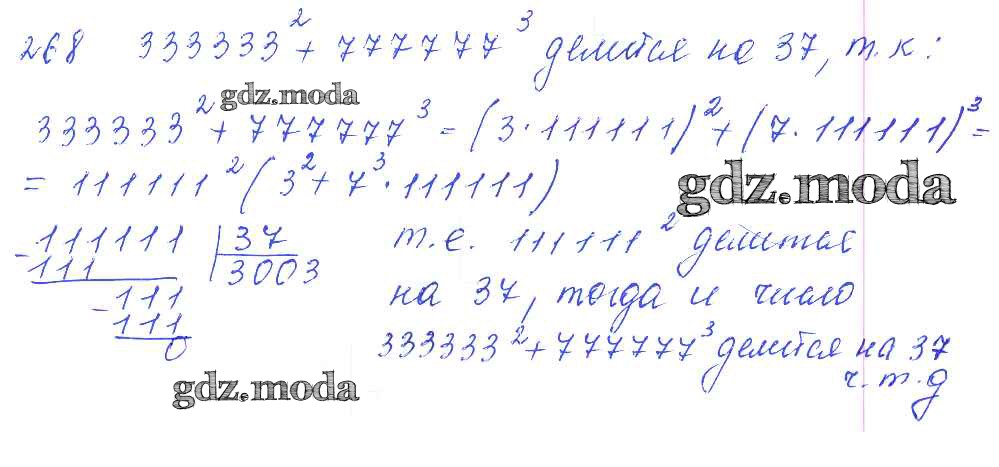 268 333333² + 777777³ делится на 37, т.к:
gdz.moda
333333² + 777777³ = (3·111111)² + (7·111111)³ =
= 111111² (3² + 7³·111111)
gdz.moda
-111111 | 37
111 3003
-111
111
0
т.е. 111111² делится
на 37, тогда и число
333333² + 777777³ делится на 37
ч.т.д
gdz.moda